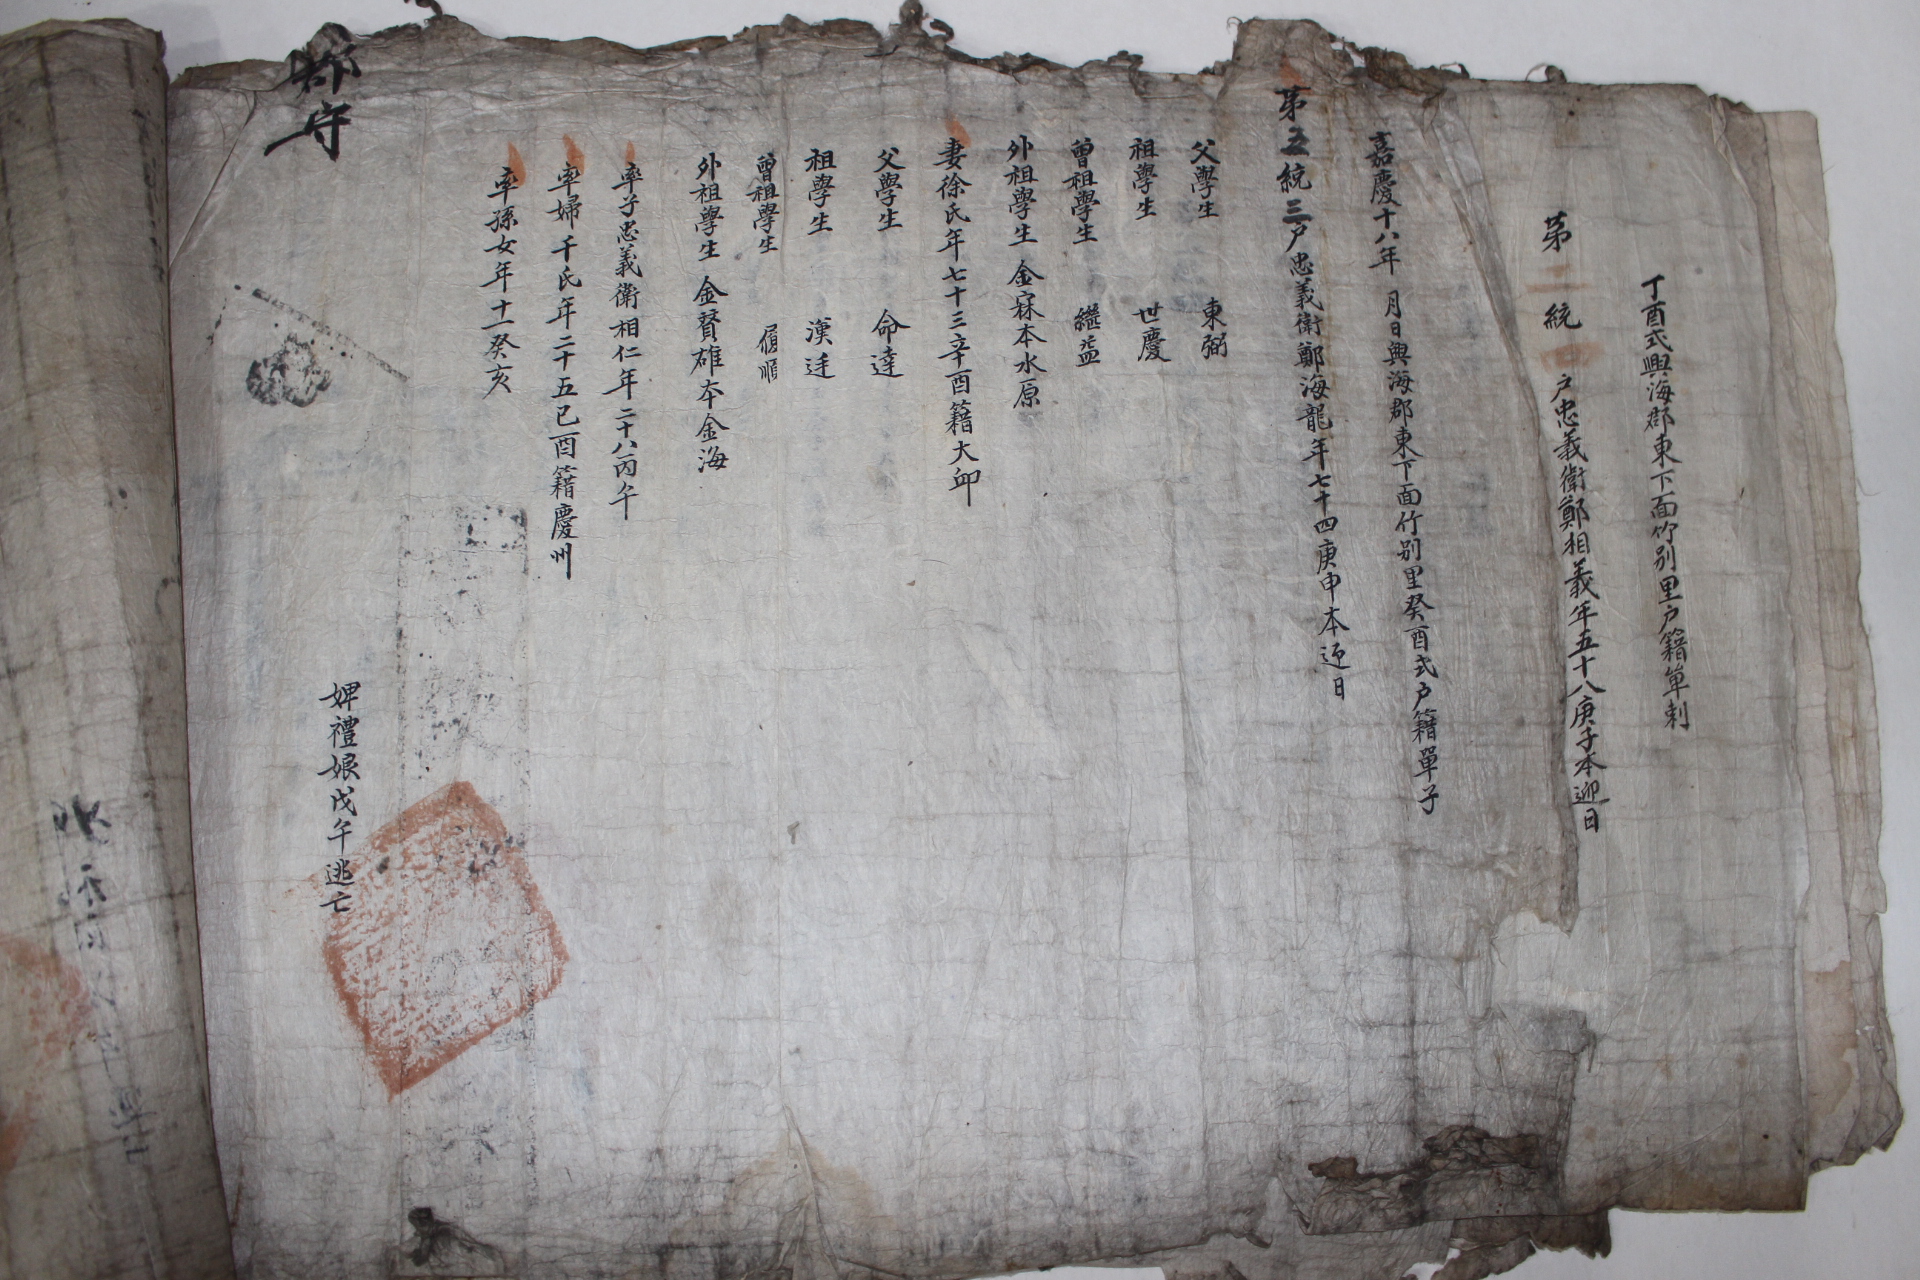 丁酉式興海郡東下面竹別里户籍單刺
第二統四户忠義衛鄭相義年五十八庚子本迎日
嘉慶十八年 月日興海郡東下面竹別里癸酉式户籍單子
第五統三户忠義衛鄭海龍年七十四庚申本迎日
父學生 東弼
祖學生 世慶
曾祖學生 繼益
外祖學生金寀本水原
妻徐氏年七十三辛酉籍大丘
父學生 命達
祖學生 漢廷
曾祖學生 順
外祖學生金賢雄本金海
率子忠義衛相仁年二十八丙午
率婦千氏年二十五己酉籍慶州
率孫女年十一癸亥
婢禮娘戊午逃亡
郡守